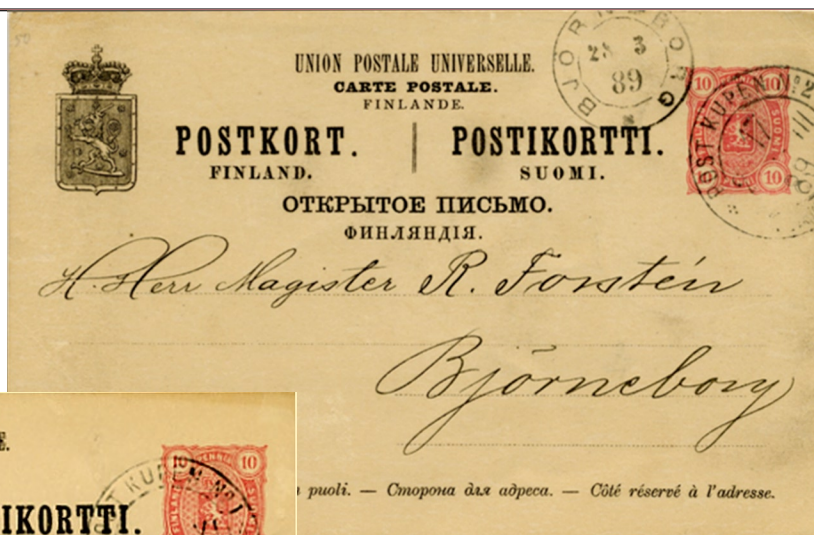 UNION POSTALE UNIVERSELLE.
CARTE POSTALE.
FINLANDE.
POSTKORT. | POSTIKORTTI.
FINLAND. SUOMI.
ОТКРЫТОЕ ПИСЬМО.
ФИНЛЯНДІЯ.
BJÖRNEBORG
28 3
89
10 10
10
POST KUPEN No 2
H. Herr Magister R. Forstén
Björneborg
puoli. — Сторона для адреса. — Côté réservé à l'adresse.
IKORTTI.
10 10
KUPEN No 1